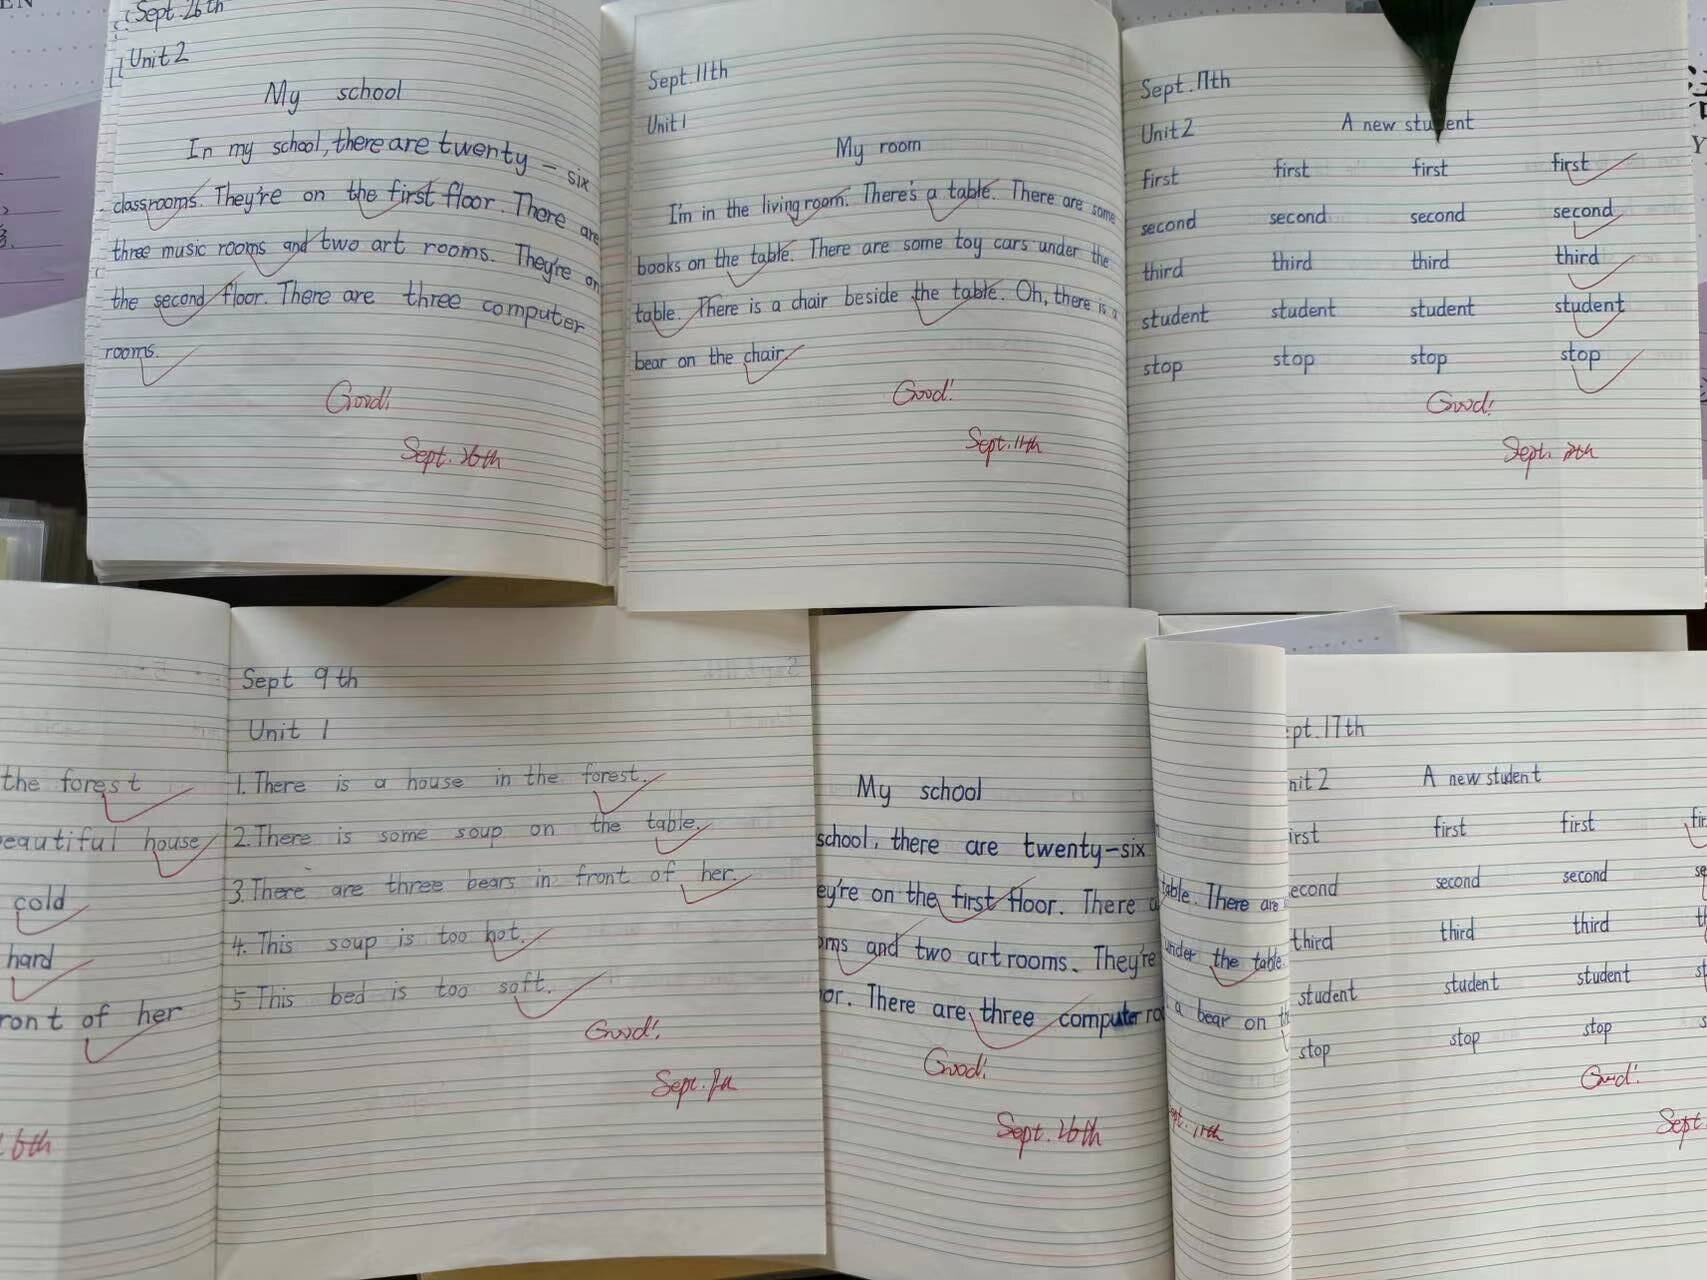 Sept. 26th
Unit 2
My school
In my school, there are twenty-six
classrooms. They're on the first floor. There are
three music rooms and two art rooms. They're on
the second floor. There are three computer
rooms.
Good!
Sept. 26th
Sept. 11th
Unit 1
My room
I'm in the living room. There's a table. There are some
books on the table. There are some toy cars under the
table. There is a chair beside the table. Oh, there is a
bear on the chair.
Good!
Sept. 11th
Sept. 17th
Unit 2 A new student
first first first first
second second second second
third third third third
student student student student
stop stop stop stop
Good!
Sept.
the forest
beautiful house
cold
hard
front of her
6th
Sept 9th
Unit 1
1. There is a house in the forest.
2. There is some soup on the table.
3. There are three bears in front of her.
4. This soup is too hot.
5 This bed is too soft.
Good!
Sept.
My school
school, there are twenty-six
ey're on the first floor. There a
oms and two art rooms. They're
or. There are three computer ro
Good!
Sept. 26th
table. There are
under the table.
a bear on th
ept. 11th
pt. 17th
nit 2 A new student
irst first first fir
econd second second se
third third third th
student student student st
stop stop stop s
Good!
Sept.